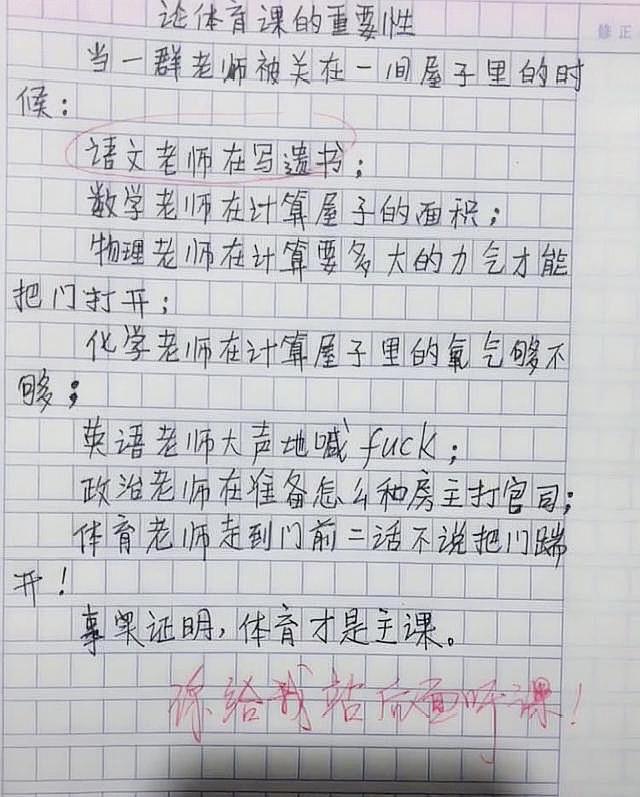 论体育课的重要性
当一群老师被关在一间屋子里的时
候：
语文老师在写遗书；
数学老师在计算屋子的面积；
物理老师在计算要多大的力气才能
把门打开；
化学老师在计算屋子里的氧气够不
够；
英语老师大声地喊fuck；
政治老师在准备怎么和房主打官司；
体育老师走到门前二话不说把门踹
开！
事实证明，体育才是主课。
你给我站后面听课！